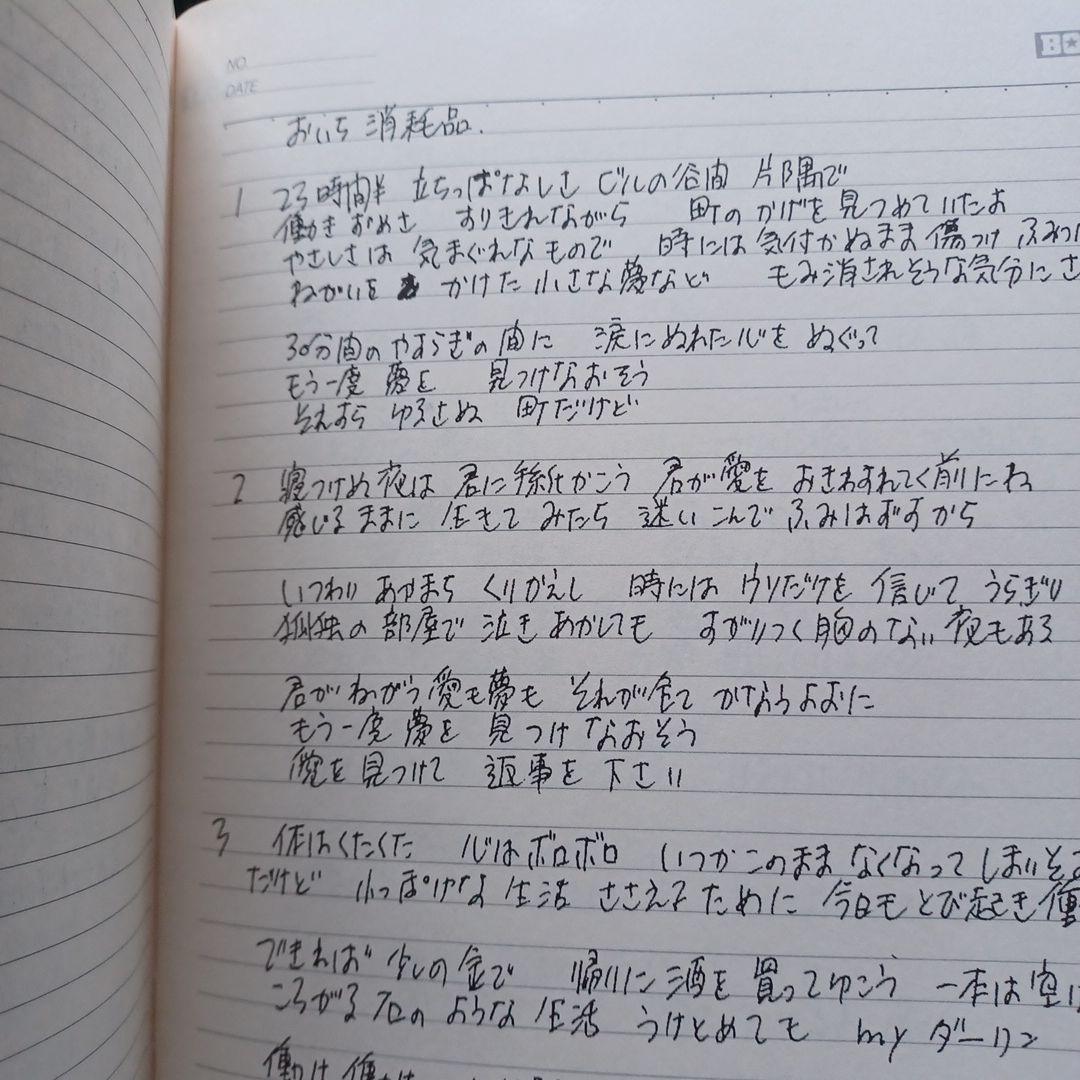 NO.
DATE
おいち 消耗品.
1 23時間半 立ちっぱなしさ ビルの谷間 片隅で
働きずめさ すりきれながら 町のかげを見つめていたよ
やさしさは 気まぐれなもので 時には気付かぬまま傷つけ
ねがいを かけた小さな夢など もみ消されそうな気分に
30分間のやすらぎの間に 涙にぬれた心を ぬぐって
もう一度 夢を 見つけなおそう
それすら ゆるさぬ 町だけど
2 寝つけぬ夜は 君に手紙かこう 君が愛を おきわすれてく前にね
感じるままに 生きて みたら 迷いこんで ふみはずすから
いつわり あやまち くりかえし 時には ウソだけを 信じて うらぎり
孤独の部屋で 泣きあかしても すがりつく胸のない夜もある
君がねがう愛も夢も それが全て かなうように
もう一度 夢を 見つけなおそう
僕を見つけて 返事を下さい
3 体はくたくた 心はボロボロ いつかこのままなくなってしまいそう
だけど 小っぽけな 生活 ささえるために 今日もとび起き
できれば 少しの金で 帰りに酒を買ってゆこう 一本は
ころがる石のような生活 うけとめても myダーリン